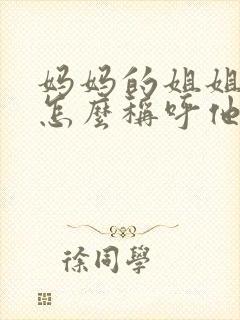 妈妈的姐姐
怎麼稱呼他
徐同學